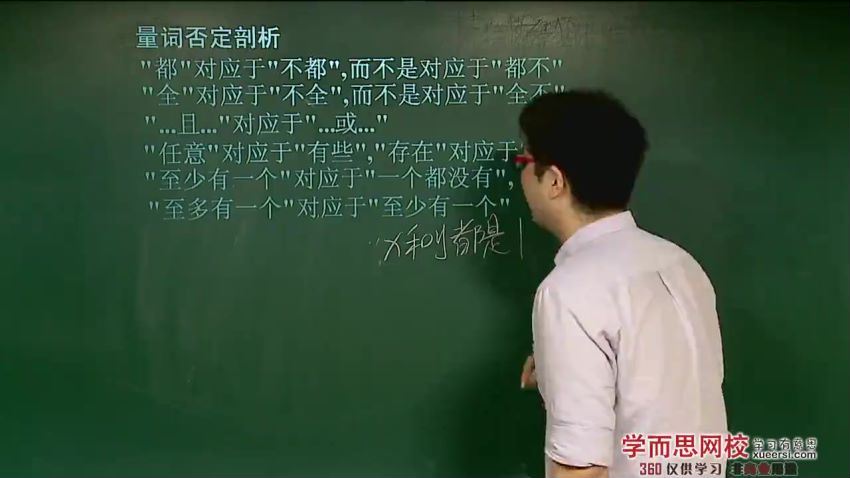 量词否定剖析
"都"对应于"不都",而不是对应于"都不"
"全"对应于"不全",而不是对应于"全不"
"...且..."对应于"...或..."
"任意"对应于"有些","存在"对应于
"至少有一个"对应于"一个都没有",
"至多有一个"对应于"至少有
x和y都是1
学而思网校
学习有意思
xueersi.com
360仅供学习